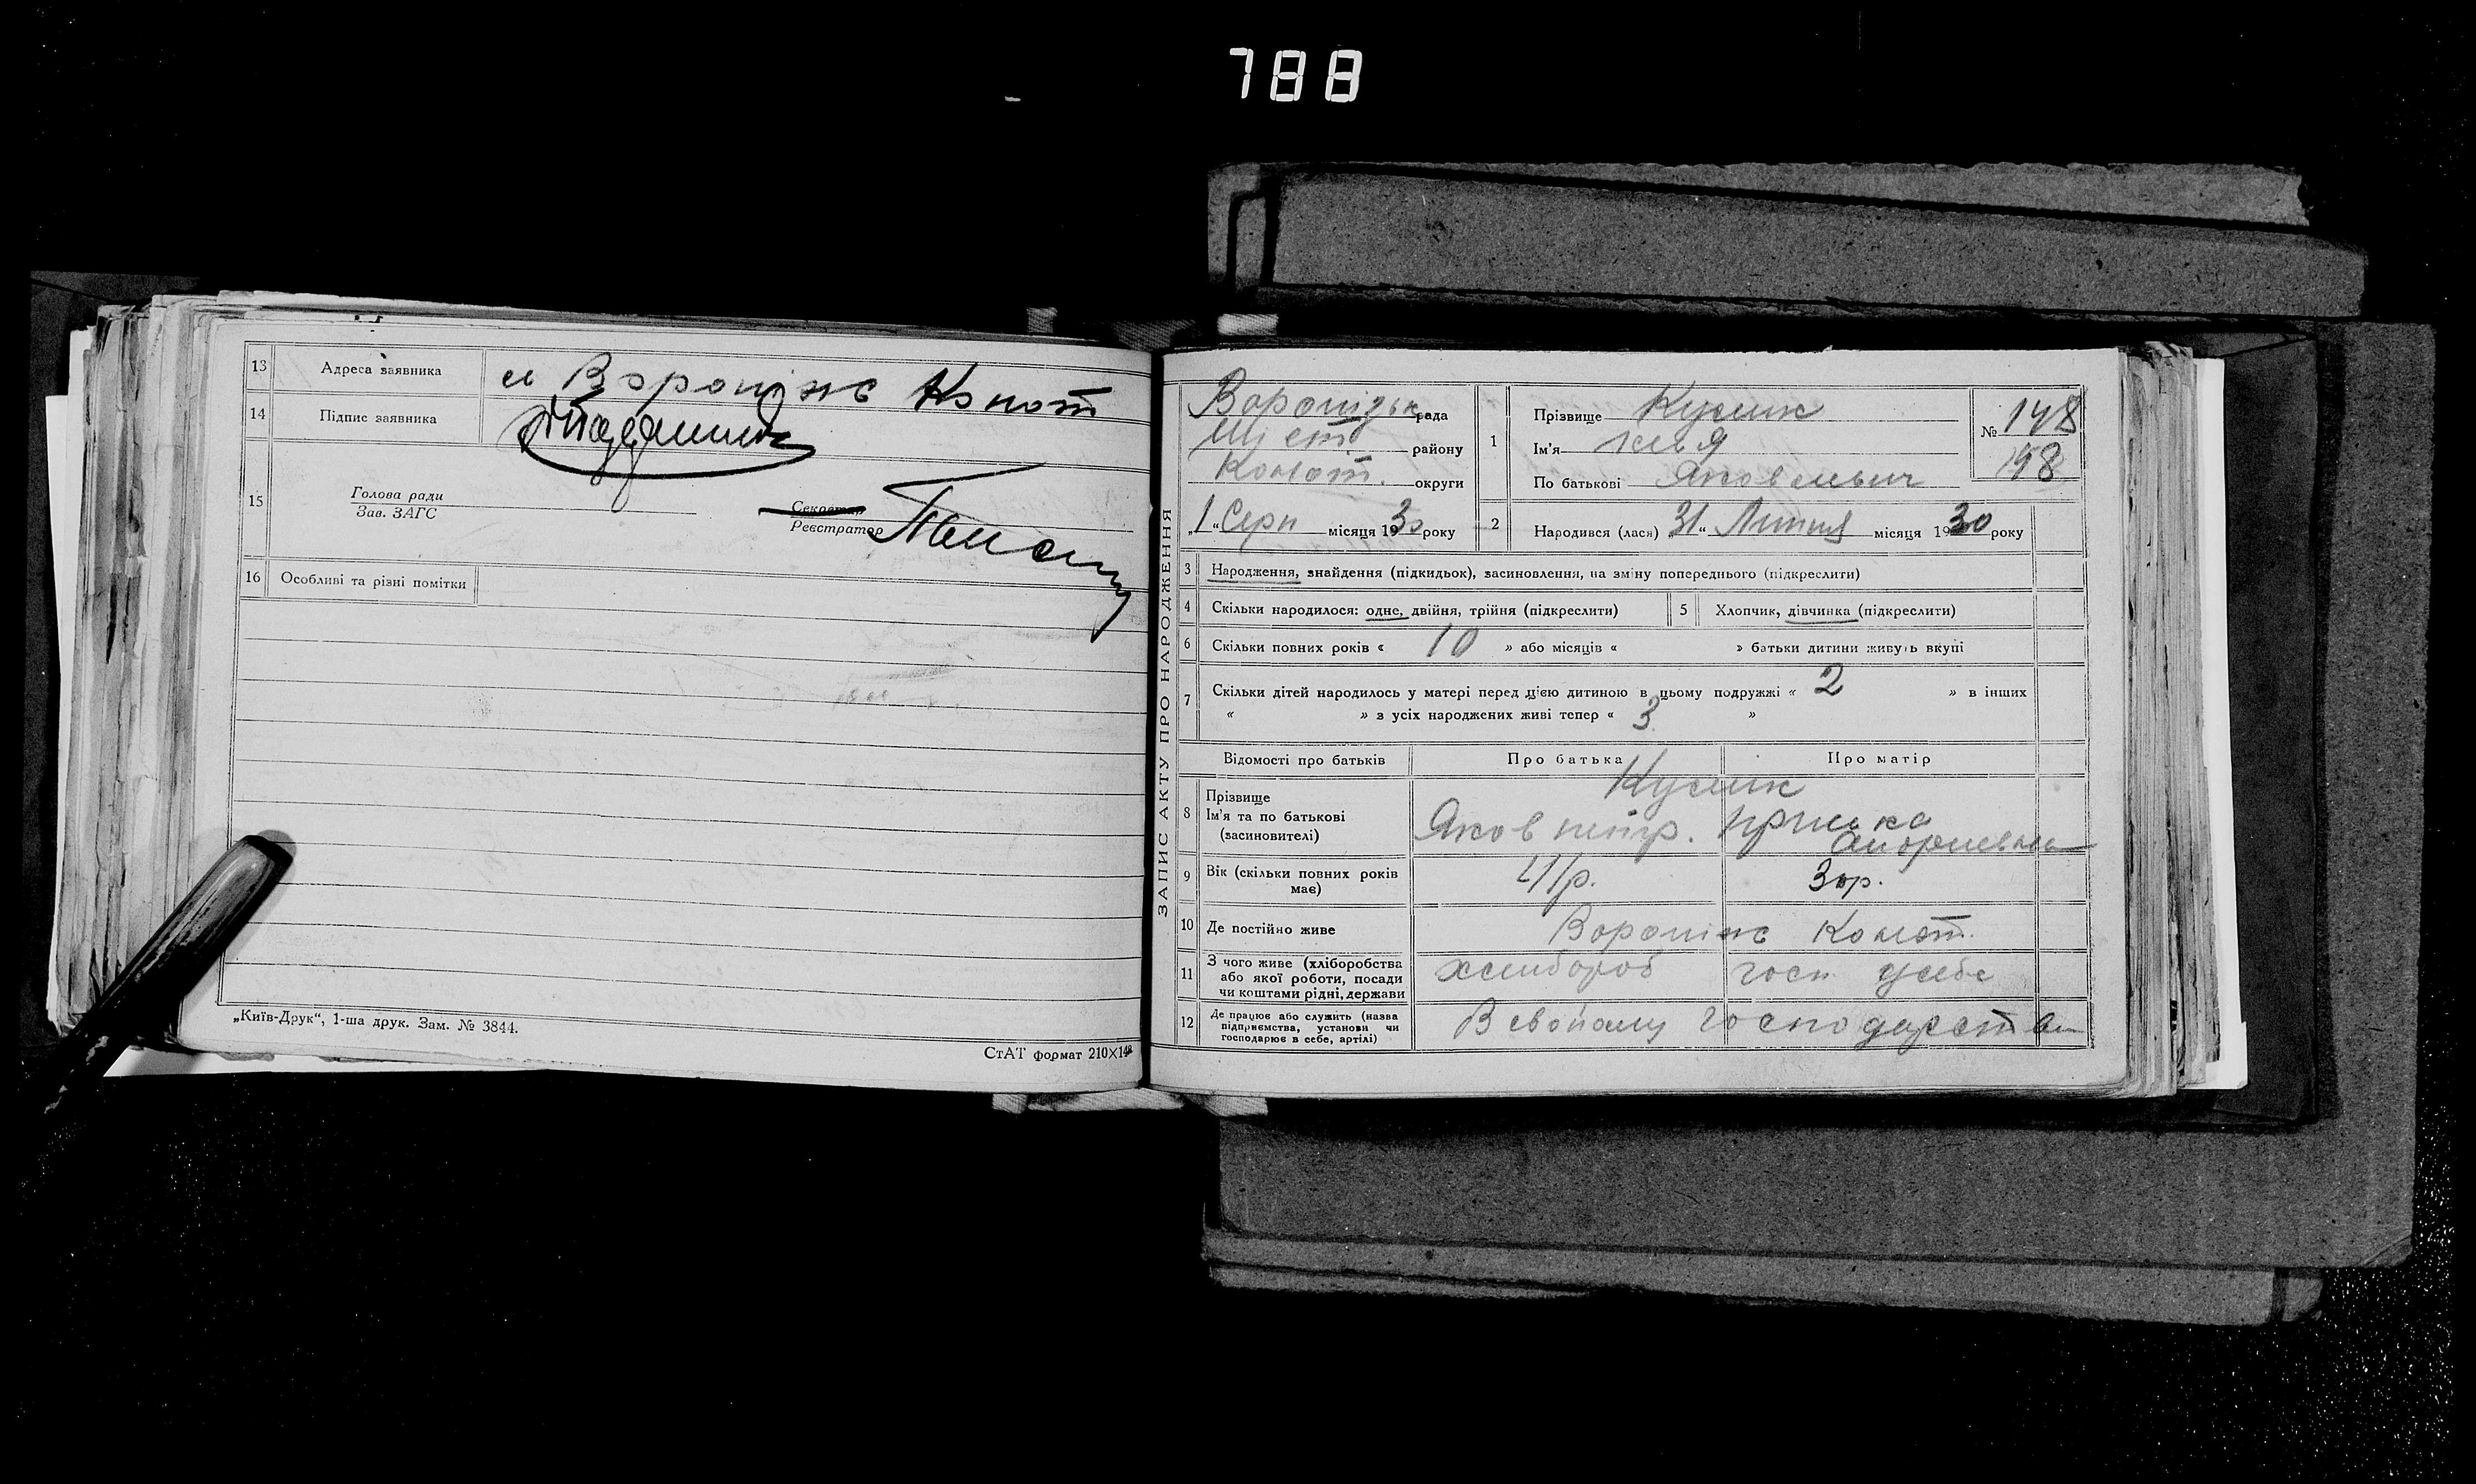 788
13 Адреса заявника м Вороніж Коnот
14 Підпис заявника
15 Голова ради
Зав. ЗАГС
Секретар
Реєстратор
16 Особливі та різні помітки
„Київ-Друк“, 1-ша друк. Зам. № 3844.
СтАТ формат 210×148
ЗАПИС АКТУ ПРО НАРОДЖЕННЯ
рада
району
Конот. округи
„1“ Серп місяця 1930 року
1 Прізвище Кулик
Ім'я Ілья
По батькові Яковлевич
№ 148
198
2 Народився (лася) „31“ Липня місяця 1930 року
3 Народження, знайдення (підкидьок), засиновлення, на зміну попереднього (підкреслити)
4 Скільки народилося: одне, двійня, трійня (підкреслити)
5 Хлопчик, дівчинка (підкреслити)
6 Скільки повних років « 10 » або місяців « » батьки дитини живуть вкупі
7 Скільки дітей народилось у матері перед цією дитиною в цьому подружжі « 2 » в інших
« » з усіх народжених живі тепер « 3 »
Відомості про батьків Про батька Про матір
8 Прізвище
Ім'я та по батькові
(засиновителі)
Кулик
Яков петр.
9 Вік (скільки повних років має) 41р.
10 Де постійно живе Вороніж Конот.
11 З чого живе (хліборобства або якої роботи, посади чи коштами рідні, держави хлибороб госп. у себе
12 Де працює або служить (назва підприємства, установи чи господарює в себе, артілі) В свойому господарстви